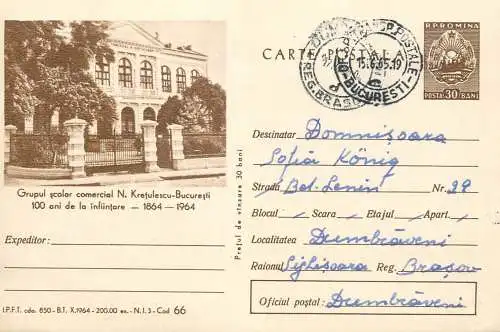 R.P. ROMINA
CARTE POȘTALĂ
15.6.65.19
BUCUREȘTI
POSTA 30 BANI
Destinatar Domnișoara
Sofia König
Strada Bd. Lenin Nr. 29
Blocul Scara Etajul Apart.
Localitatea Dumbrăveni
Raionul Sighișoara Reg. Brașov
Oficiul poștal: Dumbrăveni
Prețul de vînzare 30 bani
Grupul școlar comercial N. Krețulescu-București
100 ani de la înființare — 1864 — 1964
Expeditor:
I.P.F.T. cda. 850 - B.T. X.1964 - 200.00 ex. - N.I. 3 - Cod 66